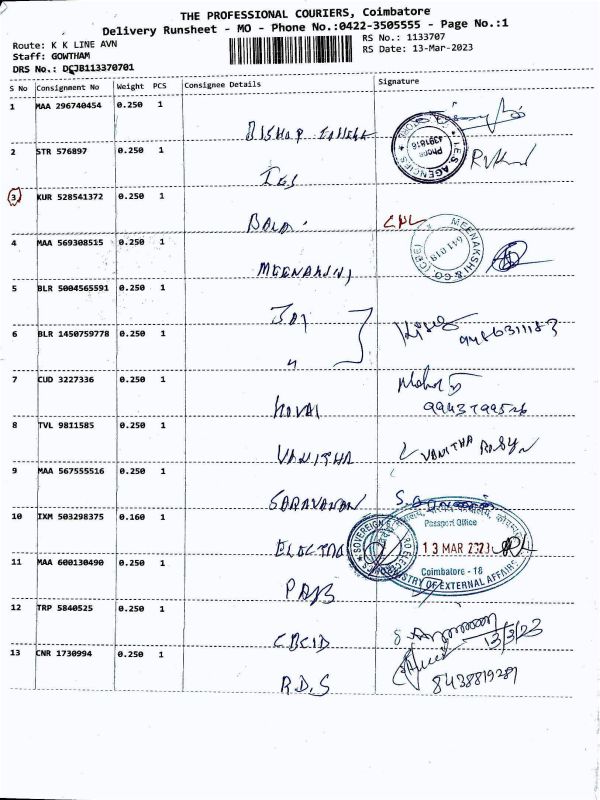 THE PROFESSIONAL COURIERS, Coimbatore
Delivery Runsheet - MO - Phone No.:0422-3505555 - Page No.:1
Route: K K LINE AVN
RS No.: 1133707
Staff: GOWTHAM
RS Date: 13-Mar-2023
DRS No.: DCJB113370701
S No Consignment No Weight PCS Consignee Details Signature
1 MAA 296740454 0.250 1
BISHOP
2 STR 576897 0.250 1
I.E.S. AGENCIES
Phone
4391816
IES
3 KUR 528541372 0.250 1
BALA
4 MAA 569308515 0.250 1
MEENAKSHI & CO (CBE)
641 018
MEENAKSHI
5 BLR 5004565591 0.250 1
JAI
6 BLR 1450759778 0.250 1
"
9486311183
7 CUD 3227336 0.250 1
KOVAI
9943799526
8 TVL 9811585 0.250 1
VANITHA
VANITHA
9 MAA 567555516 0.250 1
SARAVANAN
10 IXM 503298375 0.160 1
SOVEREIGN
Passport Office
13 MAR 2023
Coimbatore - 18
MINISTRY OF EXTERNAL AFFAIRS
ELECTRO
11 MAA 600130490 0.250 1
12 TRP 5840525 0.250 1
CBCID
13/3/23
13 CNR 1730994 0.250 1
R.D.S
8438819289